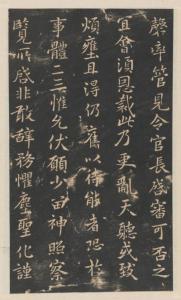 罄率管見令官長殘審可否之
宜會湏恩裁此乃更亂天聽或致
煩壅且得仍舊以待能者恐於
事體二三惟允伏願少留神照察
所感非敢辭務懼塵聖化謹